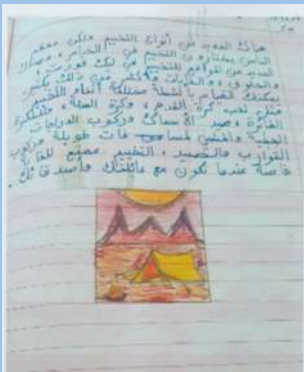 هناك العديد من أنواع التخييم ولكن معظم
الناس يختارون التخييم في الخيام، وهناك
العديد من مواقع التخييم في
والحلوى، والكثير من ذلك بكثير
يمكنك القيام بأنشطة مختلفة أثناء التخييم
مثل لعب كرة القدم، وكرة السلة، والكرة
الطائرة، وصيد الأسماك وركوب الدراجات
الجبلية والمشي لمسافات طويلة وركوب
القوارب والصيد. التخييم ممتع للغاية
خاصة عندما تكون مع عائلتك وأصدقائك.